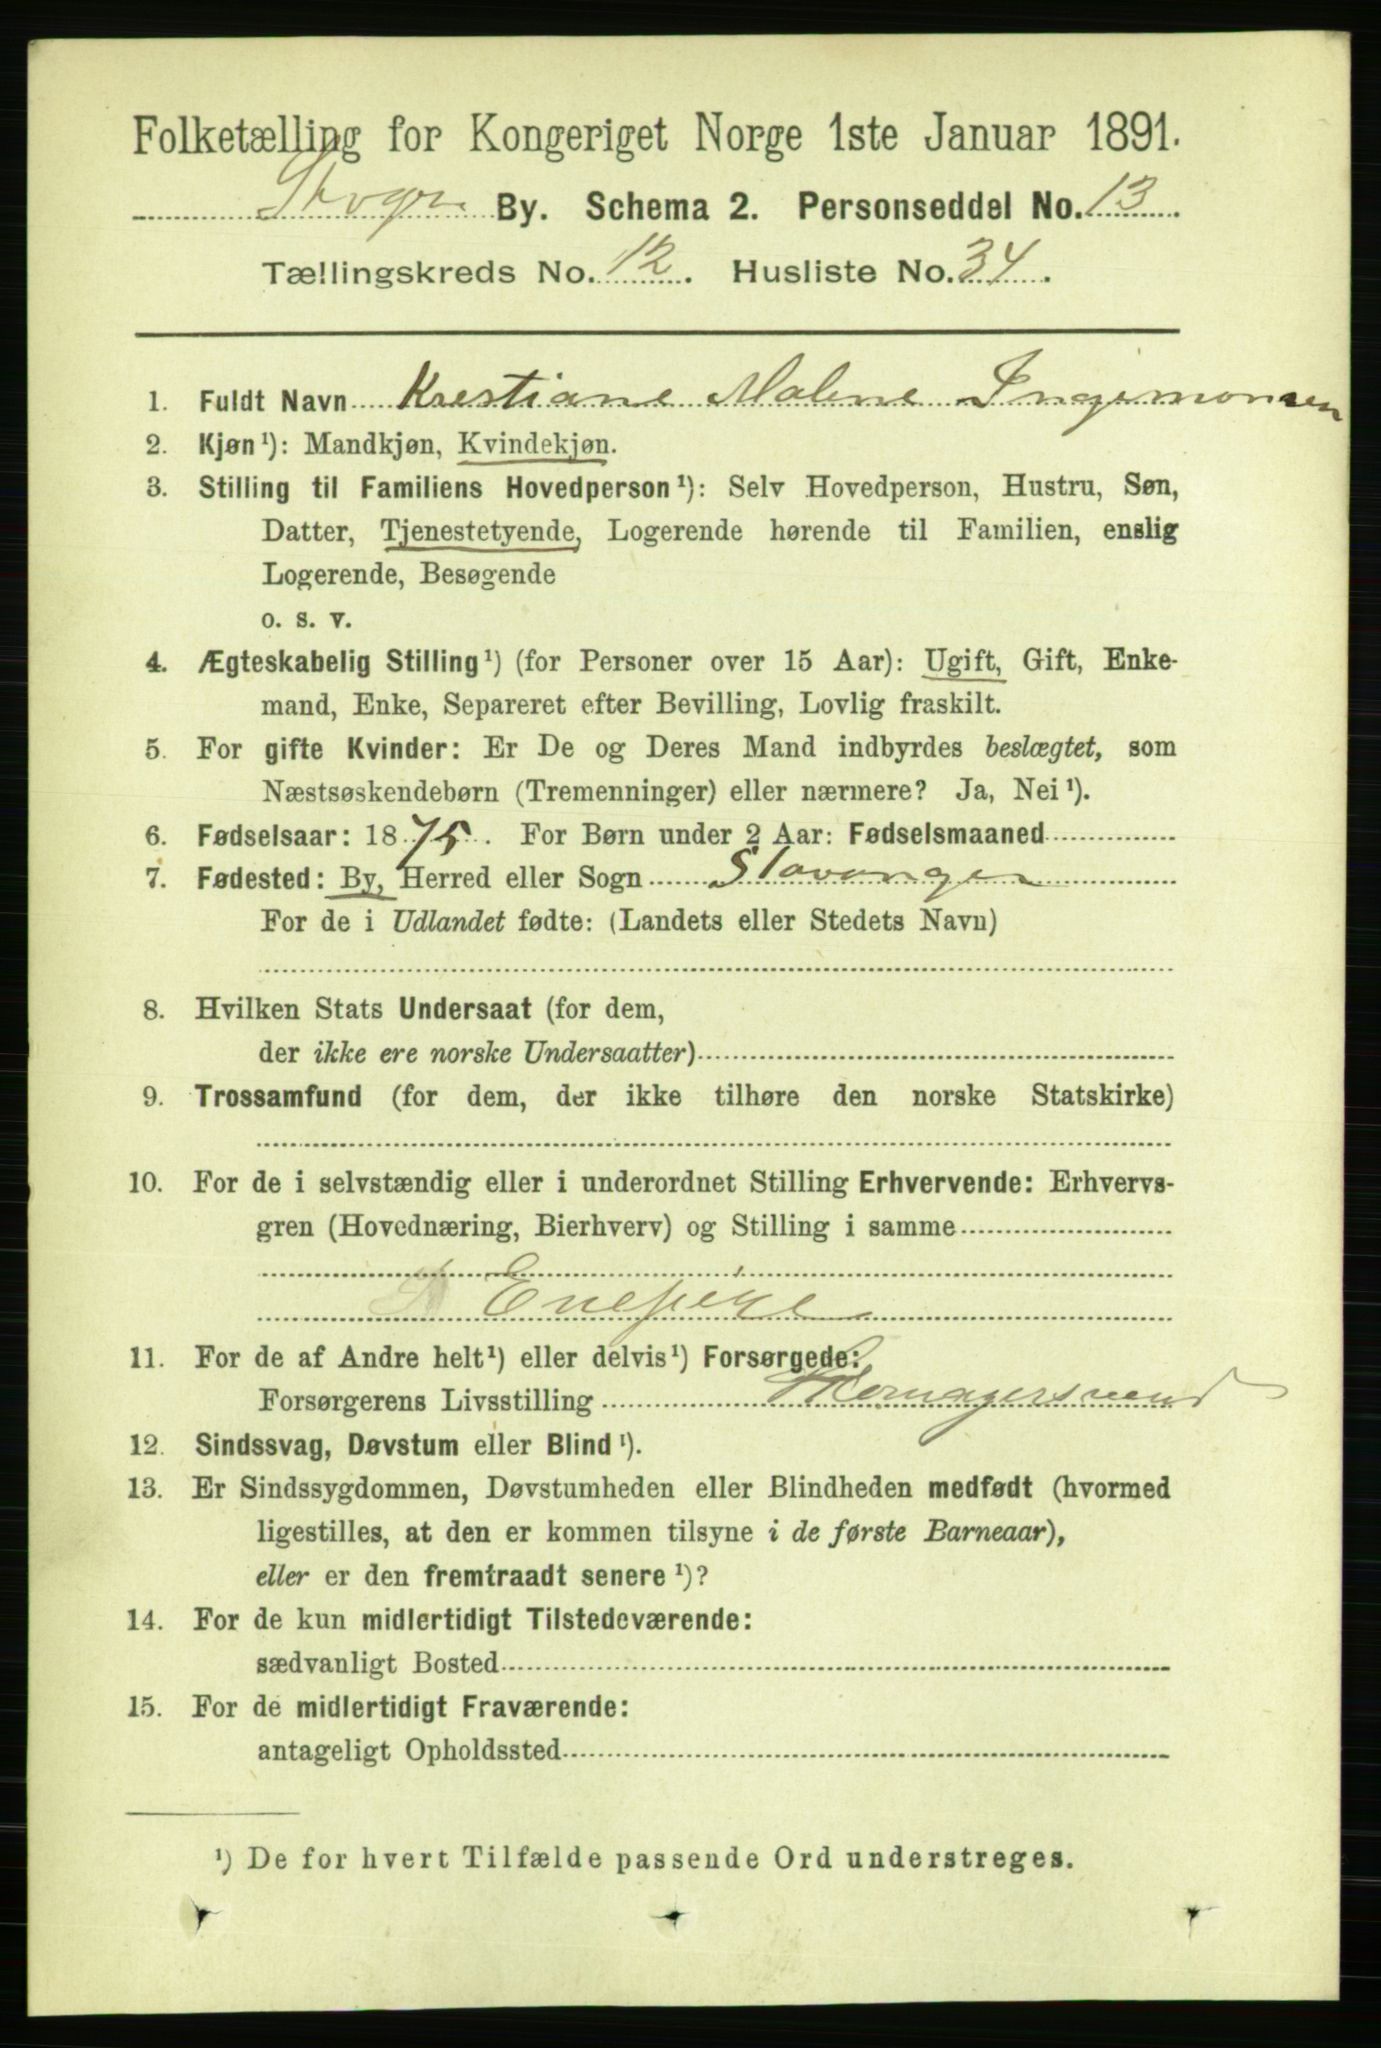 Folketælling for Kongeriget Norge 1ste Januar 1891.
By. Schema 2. Personseddel No. 13
Tællingskreds No. 12. Husliste No. 34.
1. Fuldt Navn Krestiane Malene Ingemonsen
2. Kjøn¹): Mandkjøn, Kvindekjøn.
3. Stilling til Familiens Hovedperson¹): Selv Hovedperson, Hustru, Søn,
Datter, Tjenestetyende, Logerende hørende til Familien, enslig
Logerende, Besøgende
o. s. v.
4. Ægteskabelig Stilling¹) (for Personer over 15 Aar): Ugift, Gift, Enke-
mand, Enke, Separeret efter Bevilling, Lovlig fraskilt.
5. For gifte Kvinder: Er De og Deres Mand indbyrdes beslægtet, som
Næstsøskendebørn (Tremenninger) eller nærmere? Ja, Nei¹).
6. Fødselsaar: 1875. For Børn under 2 Aar: Fødselsmaaned
7. Fødested: By, Herred eller Sogn Stavanger
For de i Udlandet fødte: (Landets eller Stedets Navn)
8. Hvilken Stats Undersaat (for dem,
der ikke ere norske Undersaatter)
9. Trossamfund (for dem, der ikke tilhøre den norske Statskirke)
10. For de i selvstændig eller i underordnet Stilling Erhvervende: Erhvervs-
gren (Hovednæring, Bierhverv) og Stilling i samme
Enepige
11. For de af Andre helt¹) eller delvis¹) Forsørgede:
Forsørgerens Livsstilling Skomagersvend
12. Sindssvag, Døvstum eller Blind¹).
13. Er Sindssygdommen, Døvstumheden eller Blindheden medfødt (hvormed
ligestilles, at den er kommen tilsyne i de første Barneaar),
eller er den fremtraadt senere¹)?
14. For de kun midlertidigt Tilstedeværende:
sædvanligt Bosted
15. For de midlertidigt Fraværende:
antageligt Opholdssted
¹) De for hvert Tilfælde passende Ord understreges.